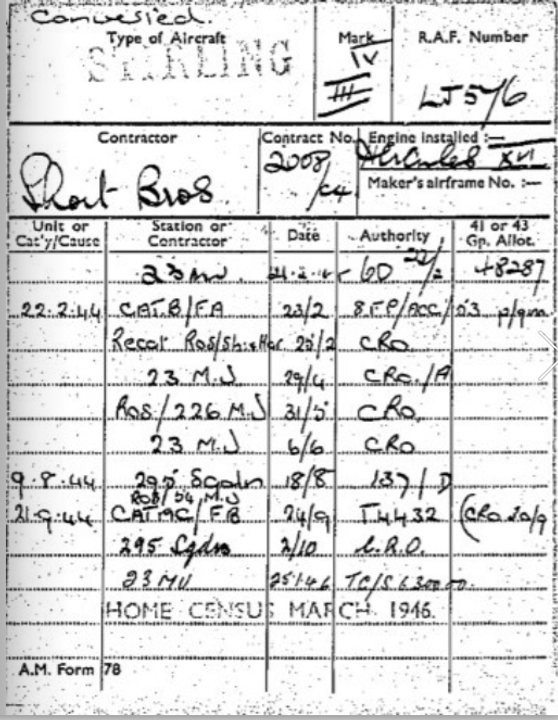 Converted.
Type of Aircraft Mark R.A.F. Number
STIRLING IV
III LJ576
Contractor Contract No. Engine installed :—
Short Bros 2008/C4 Hercules XVI
Maker's airframe No. :—
Unit or Cat'y/Cause Station or Contractor Date Authority 41 or 43 Gp. Allot.
23 MU 21.2. 6D 22/2 48287
22.2.44 CAT.B/FA 23/2 SFP/ACC/53
Recat Ros/Sh. & Har 25/2 CRO
23 M.U 29/4 CRO/A
Ros/226 M.U 31/5 CRO
23 M.U 6/6 CRO
9.8.44 295 Sqdn 18/8 137/D
ROS/54 M.U
21.9.44 CAT AC/FB 24/9 T4432 (CRO 20/9
295 Sqdn 2/10 C.R.O.
23 MU 25.1.46
HOME CENSUS MARCH 1946.
A.M. Form 78